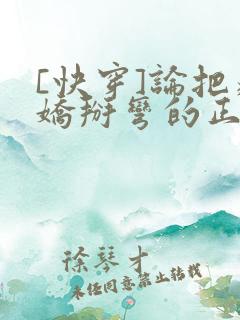 [快穿]論把
嬌掰彎的正
徐琴才
未經同意禁止轉載